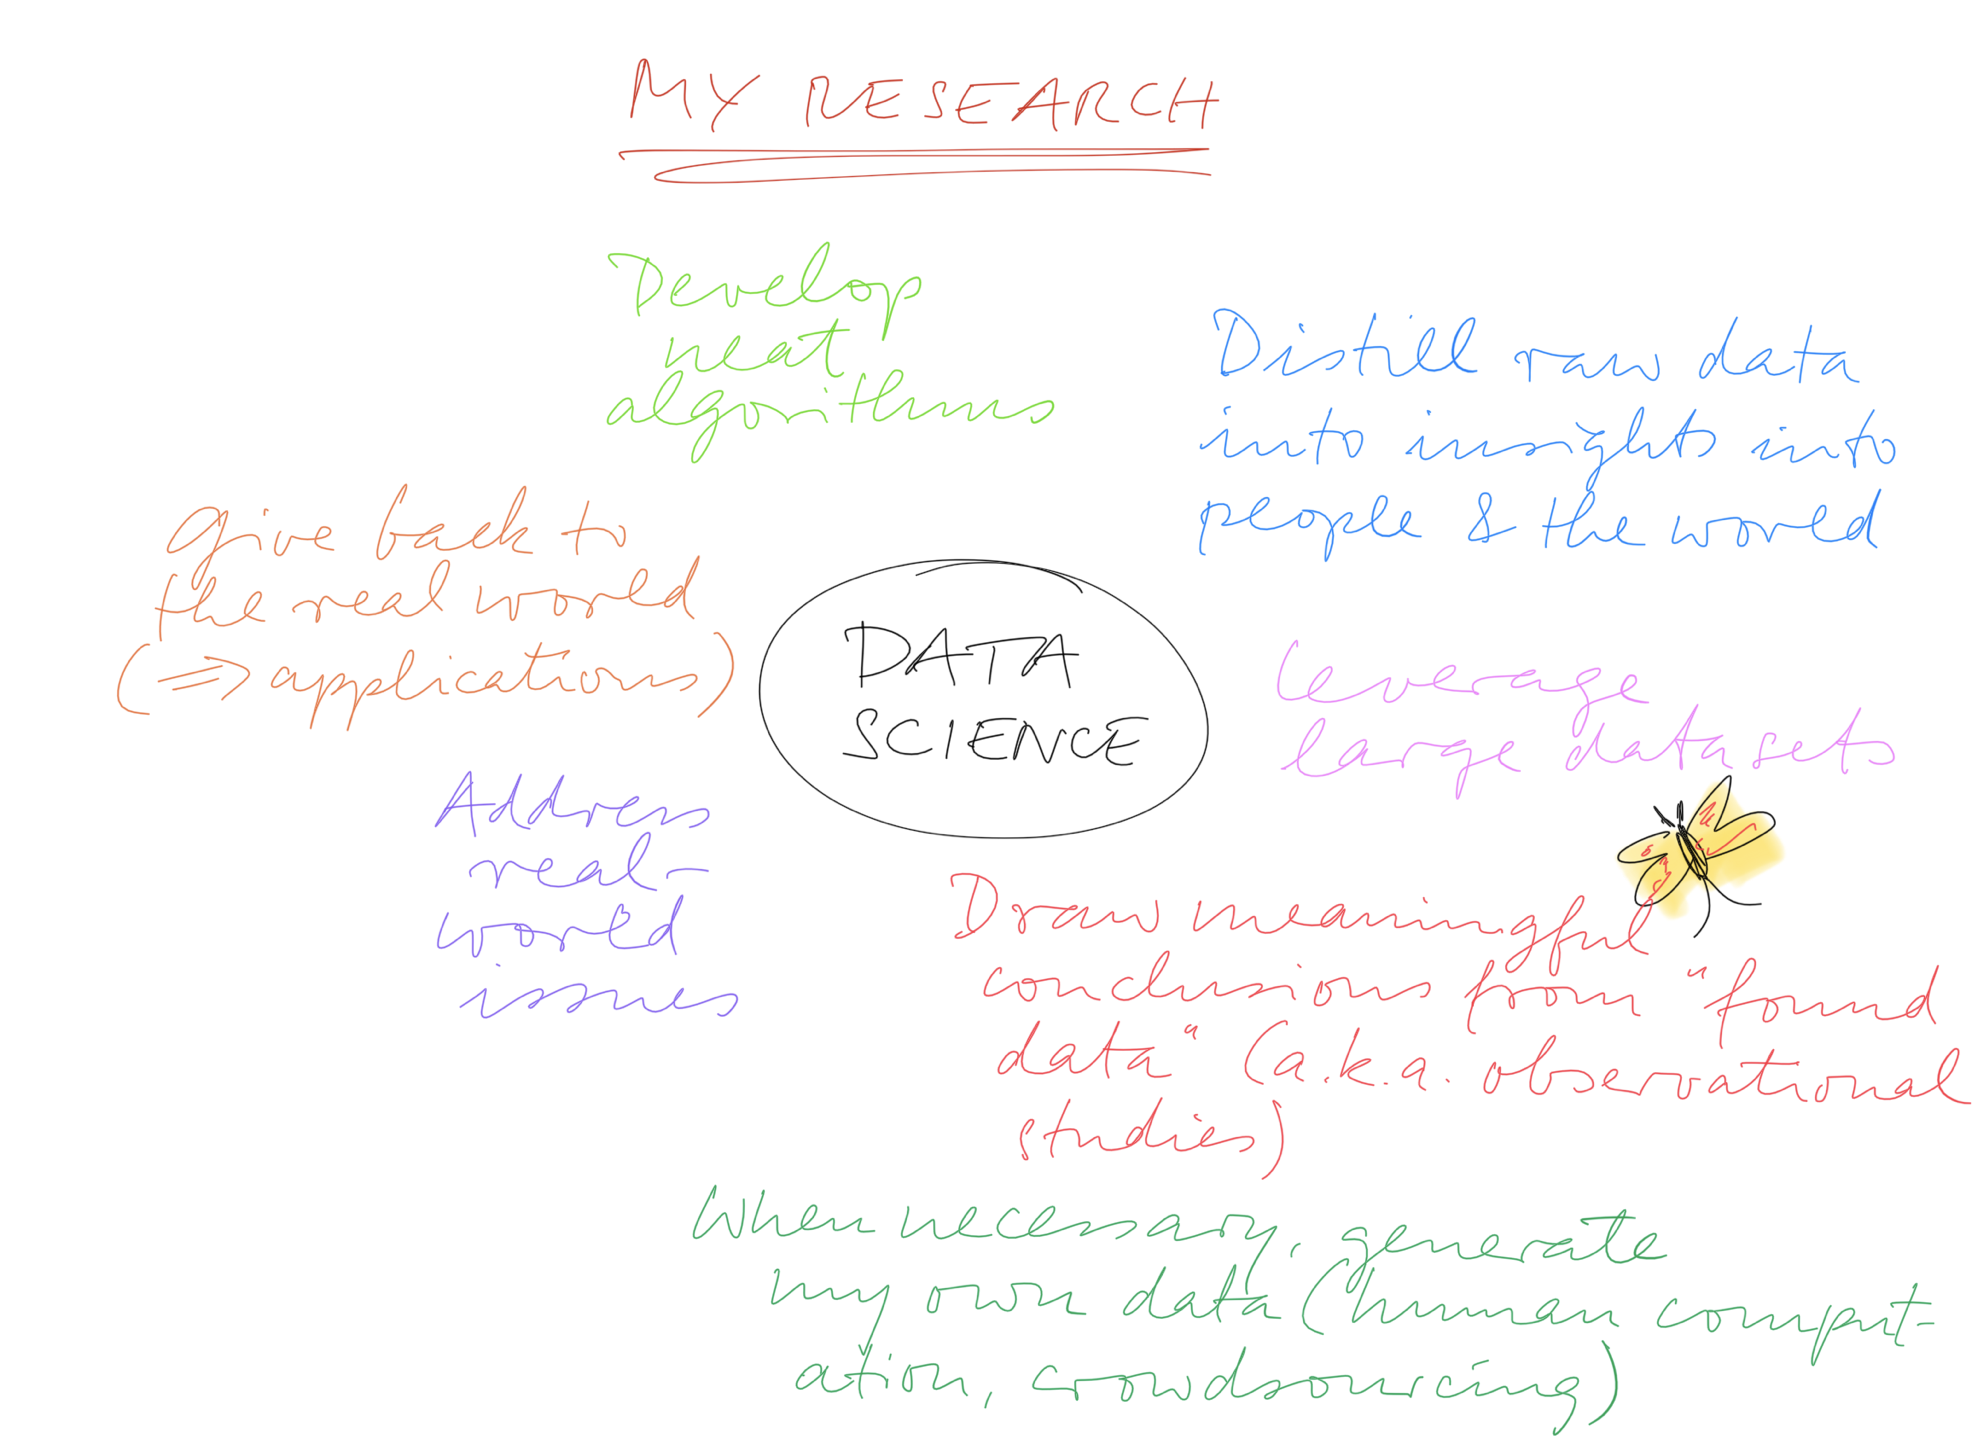 MY RESEARCH
Develop
neat
algorithms
Distill raw data
into insights into
people & the world
Give back to
the real world
(⇒ applications)
DATA
SCIENCE
Leverage
large datasets
Address
real-
world
issues
Draw meaningful
conclusions from "found
data" (a.k.a. observational
studies)
When necessary, generate
my own data (human comput-
ation, crowdsourcing)